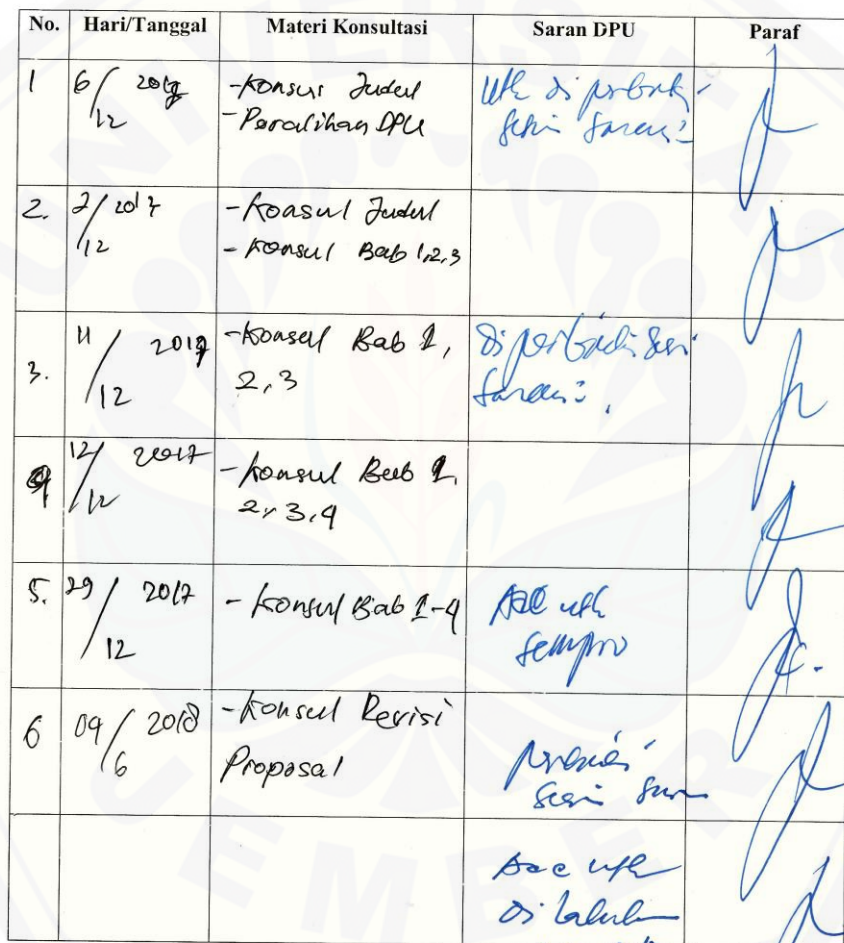 No. Hari/Tanggal Materi Konsultasi Saran DPU Paraf
1 6/12 2017 -Konsul Judul Utk di perbaiki
-Peralihan DPU sesuai saran
2. 7/12 2017 -Konsul Judul
-Konsul Bab 1,2,3
3. 11/12 2017 -Konsul Bab 1, Di perbaiki sesuai
2,3 saran
4 12/12 2017 -Konsul Bab 1,
2, 3, 4
5. 29/12 2017 - Konsul Bab 1-4 Acc utk
sempro
6 09/6 2018 -Konsul Revisi
Proposal
sesuai saran
Acc utk
di
UNIVERSITAS
JEMBER